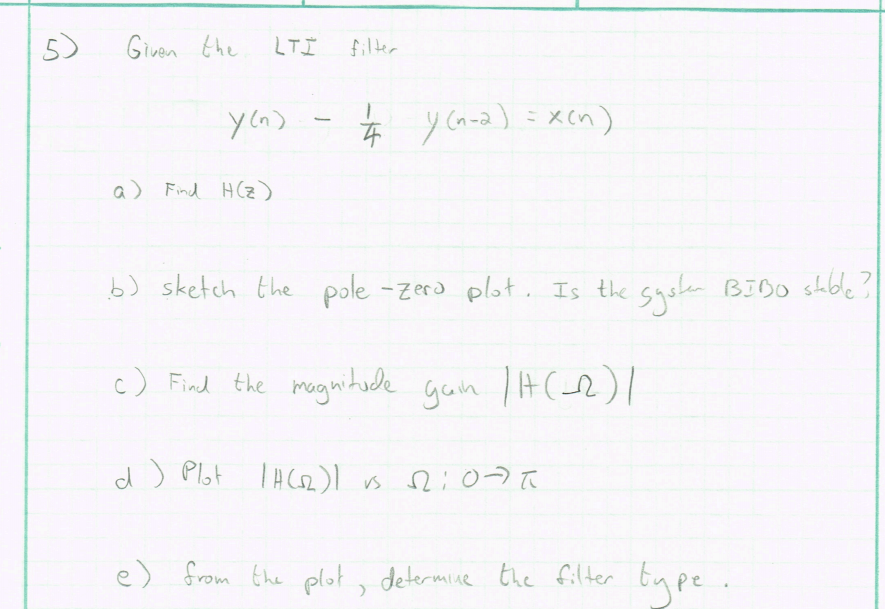 5) Given the LTI filter
y(n) - 1/4 y(n-2) = x(n)
a) Find H(z)
b) sketch the pole-zero plot. Is the system BIBO stable?
c) Find the magnitude gain |H(Ω)|
d) Plot |H(Ω)| vs Ω: 0→π
e) from the plot, determine the filter type.